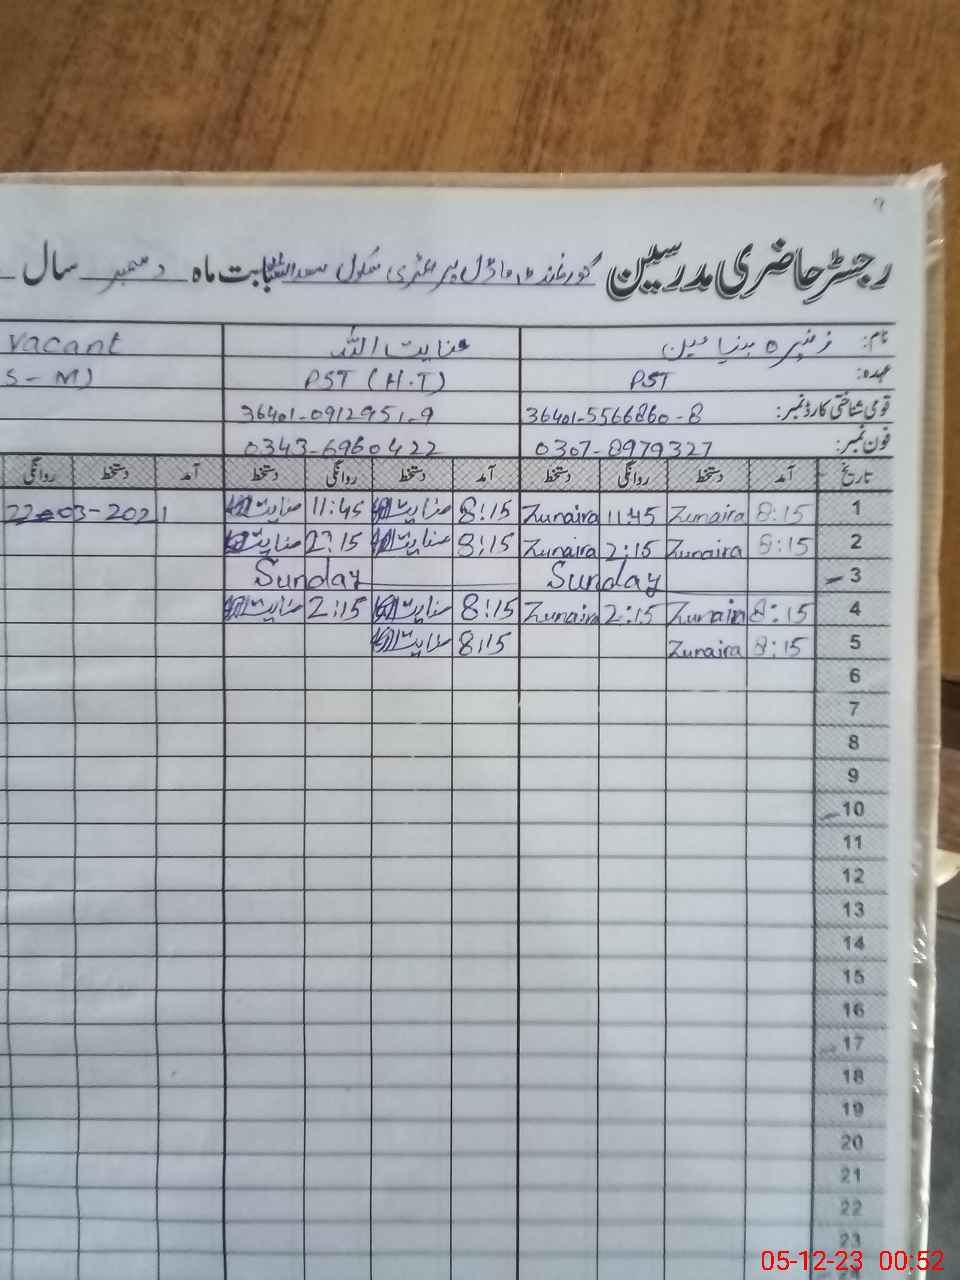 9
رجسٹر حاضری مدرسین گورنمنٹ ماڈل پرائمری سکول بابت ماہ دسمبر سال
نام: زنیرہ بنیامین عنایت اللہ Vacant
عہدہ: PST PST (H.T) S-M)
قومی شناختی کارڈ نمبر: 36401-5566860-8 36401-0912951-9
فون نمبر: 0307-8979327 0343-6960422
تاریخ آمد دستخط روانگی دستخط آمد دستخط روانگی دستخط آمد دستخط روانگی
1 8:15 Zunaira 11:45 Zunaira 8:15 عنایت اللہ 11:45 عنایت اللہ 22-03-2021
2 8:15 Zunaira 2:15 Zunaira 8:15 عنایت اللہ 2:15 عنایت اللہ
3 Sunday Sunday
4 8:15 Zunaira 2:15 Zunaira 8:15 عنایت اللہ 2:15 عنایت اللہ
5 8:15 Zunaira 8:15 عنایت اللہ
6
7
8
9
10
11
12
13
14
15
16
17
18
19
20
21
22
23
24
05-12-23 00:52